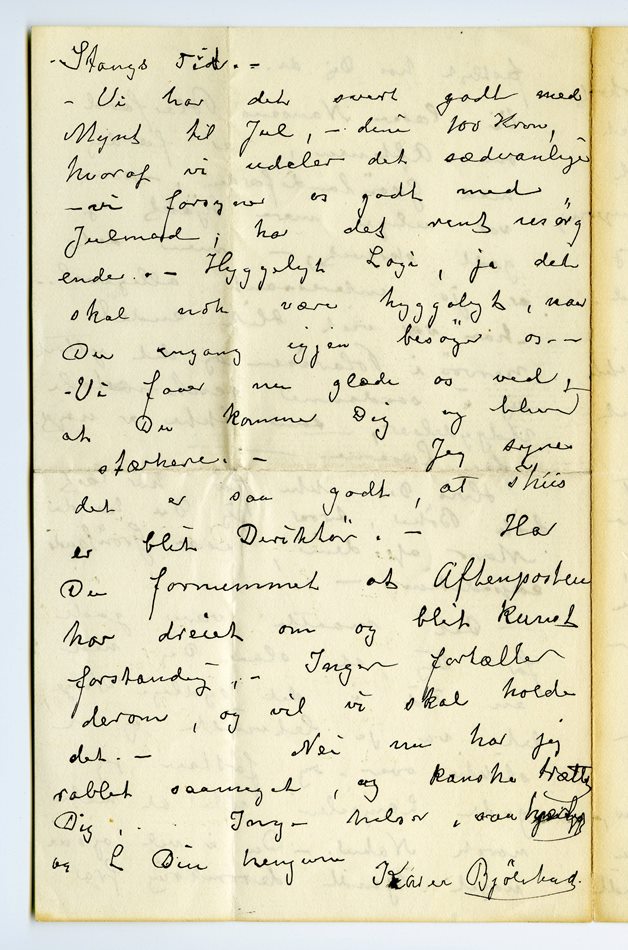 -Stangs Tid. -
- Vi har det svært godt med
Mynt til Jul, - dine 100 Kron,
hvoraf vi udeler det sædvanlige
- vi forsyner os godt med
Julmad, har det rent
ende. - Hyggelygt Logi, ja det
skal nok være hyggeligt, naar
Du engang igjen besøger os --
- Vi faaer nu glæde os ved,
at Du kommer Dig og bliver
stærkere. - Jeg synes
det er saa godt, at Thiis
er blit Diriktör. - Har
Du fornemmet at Aftenposten
har dreiet om og blit kunst
forstandig, - Inger fortæller
derom, og vil vi skal holde
det. - Nei nu har jeg
rablet saameget, og kanske trætte
Dig, . . Inger hilser, saa
og L Din hengivne
Karen Bjölstad.